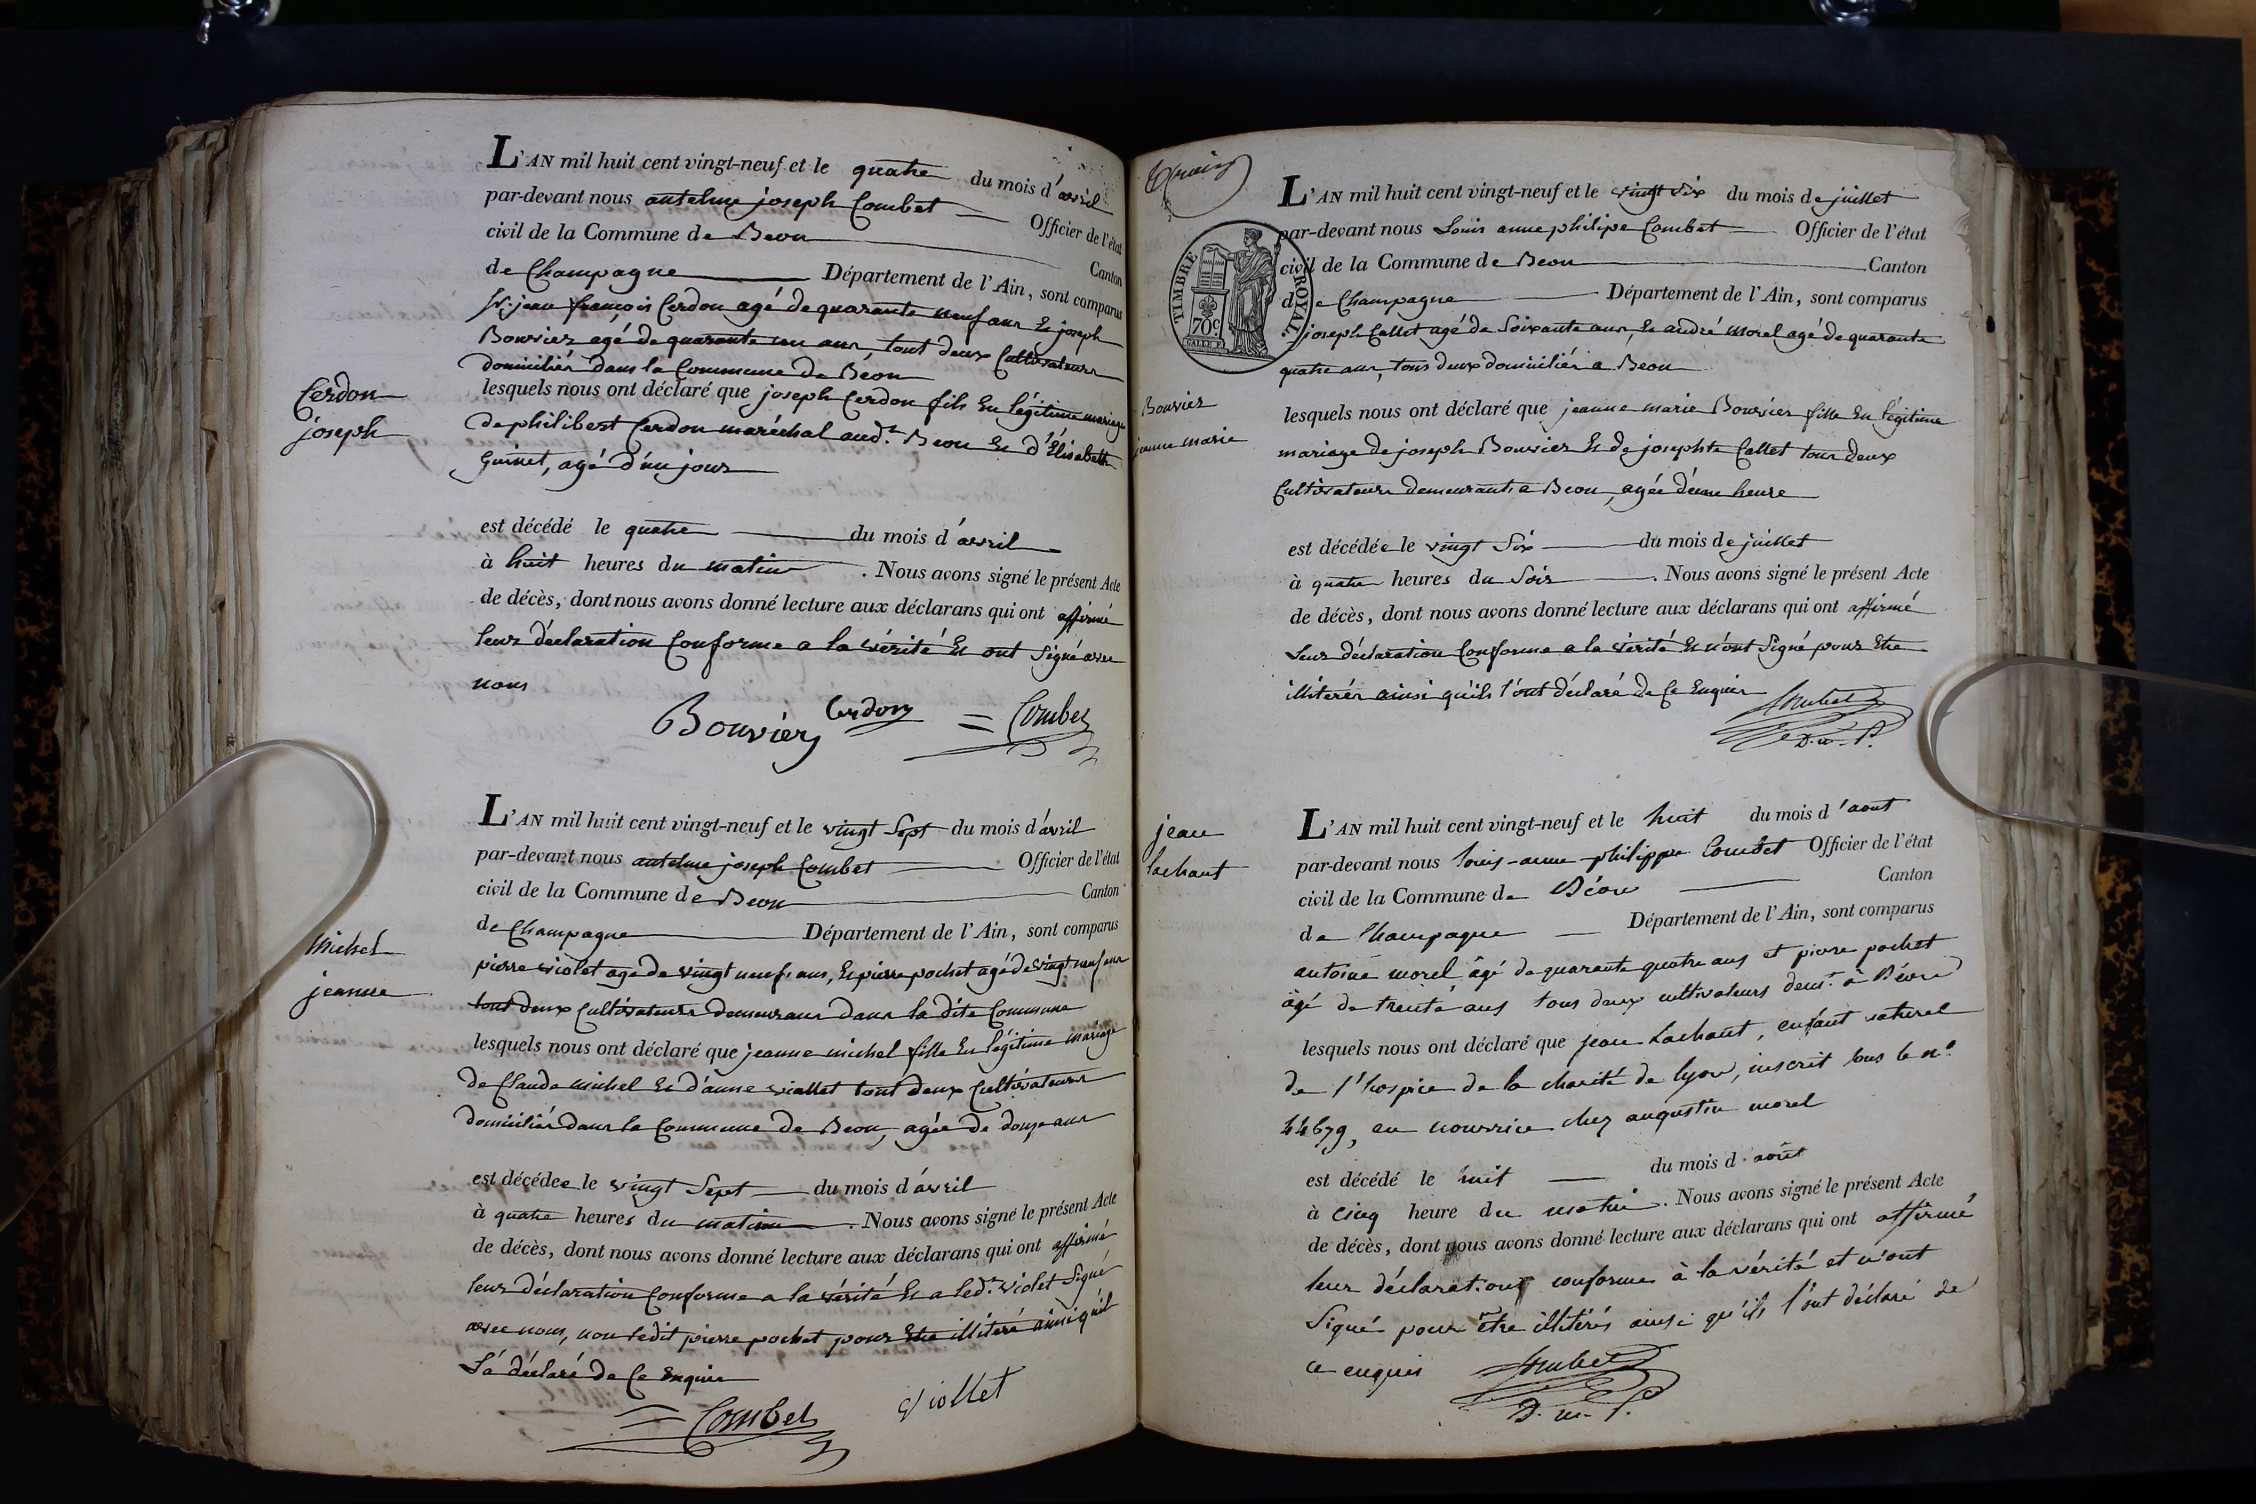 L'AN mil huit cent vingt-neuf et le quatre du mois d'avril
par-devant nous antelme joseph Combet Officier de l'état
civil de la Commune de Beon Canton
de Champagne Département de l'Ain, sont comparus
sr. jean françois Cerdon agé de quarante neuf ans Et joseph
Bouvier agé de quarante un ans, tout deux Cultivateurs
domiciliés dans la Commune de Béon
Cerdon
joseph
lesquels nous ont déclaré que joseph Cerdon fils En légitime mariage
de philibert Cerdon maréchal aud.t Beon Et d'Élisabeth
Guinet, agé d'un jour
est décédé le quatre du mois d'avril
à huit heures du matin . Nous avons signé le présent Acte
de décès, dont nous avons donné lecture aux déclarans qui ont affirmé
leur déclaration Conforme a la vérité Et ont signé avec
nous
Bouvier Cerdon Combet
L'AN mil huit cent vingt-neuf et le vingt Sept du mois d'avril
par-devant nous antelme joseph Combet Officier de l'état
civil de la Commune de Beon Canton
de Champagne Département de l'Ain, sont comparus
pierre violet agé de vingt neuf ans, Et pierre pochet agé de vingt neuf ans
tout deux Cultivateurs demeurans dans la dite Commune
Michel
jeanne
lesquels nous ont déclaré que jeanne michel fille En légitime mariage
de Claude michel Et d'anne viallet tout deux Cultivateurs
domiciliés dans la Commune de Beon, agée de douze ans
est décédée le vingt Sept du mois d'avril
à quatre heures du matin . Nous avons signé le présent Acte
de décès, dont nous avons donné lecture aux déclarans qui ont affirmé
leur déclaration Conforme a la vérité Et a led.t violet Signé
avec nous, non ledit pierre pochet pour Etre illitéré ainsi qu'il
L'a déclaré de Ce Enquis
Combet Viollet
TIMBRE ROYAL.
70c.
L'AN mil huit cent vingt-neuf et le vingt six du mois de juillet
par-devant nous Louis anne philipe Combet Officier de l'état
civil de la Commune de Beon Canton
de Champagne Département de l'Ain, sont comparus
joseph Callet agé de Soixante ans, Et andré morel agé de quarante
quatre ans, tous deux domiciliés a Beon
Bouvier
jeanne marie
lesquels nous ont déclaré que jeanne marie Bouvier fille En légitime
mariage de joseph Bouvier Et de josephte Callet tous deux
Cultivateurs demeurants a Beon, agée d'une heure
est décédée le vingt Six du mois de juillet
à quatre heures du Soir . Nous avons signé le présent Acte
de décès, dont nous avons donné lecture aux déclarans qui ont affirmé
Leur déclaration Conforme a la vérité Et n'ont Signé pour Etre
illiterés ainsi qu'ils l'ont déclaré de Ce Enquis
Combet
D. m. P.
jean
Lachaut
L'AN mil huit cent vingt-neuf et le huit du mois d'aout
par-devant nous louis-anne-philippe Combet Officier de l'état
civil de la Commune de Béon Canton
de Champagne Département de l'Ain, sont comparus
antoine morel âgé de quarante quatre ans et pierre pochet
âgé de trente ans tous deux cultivateurs demt. à Béon
lesquels nous ont déclaré que jean Lachaut, enfant naturel
de l'hospice de la charité de lyon, inscrit sous le no.
44679, en nourrice chez augustin morel
est décédé le huit du mois d'août
à cinq heure du matin . Nous avons signé le présent Acte
de décès, dont nous avons donné lecture aux déclarans qui ont affirmé
leur déclaration conforme à la vérité et n'ont
Signé pour être illitérés ainsi qu'ils l'ont déclaré de
ce enquis Combet
D. m. P.